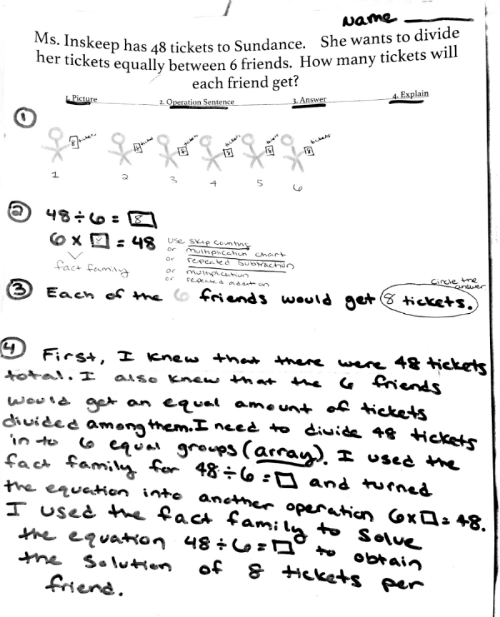 Name
Ms. Inskeep has 48 tickets to Sundance. She wants to divide
her tickets equally between 6 friends. How many tickets will
each friend get?
1. Picture 2. Operation Sentence 3. Answer 4. Explain
1
8 tickets 8 8 8 8 8 tickets
1 2 3 4 5 6
2 48 ÷ 6 = 8
6 × = 48
use skip counting
or multiplication chart
or repeated subtraction
or multiplication
or repeated addition
fact family
circle the
answer
3 Each of the 6 friends would get 8 tickets.
4 First, I knew that there were 48 tickets
total. I also knew that the 6 friends
would get an equal amount of tickets
divided among them. I need to divide 48 tickets
in to 6 equal groups (array). I used the
fact family for 48 ÷ 6 = □ and turned
the equation into another operation 6 x □ = 48.
I used the fact family to solve
the equation 48 ÷ 6 = □ to obtain
the solution of 8 tickets per
friend.